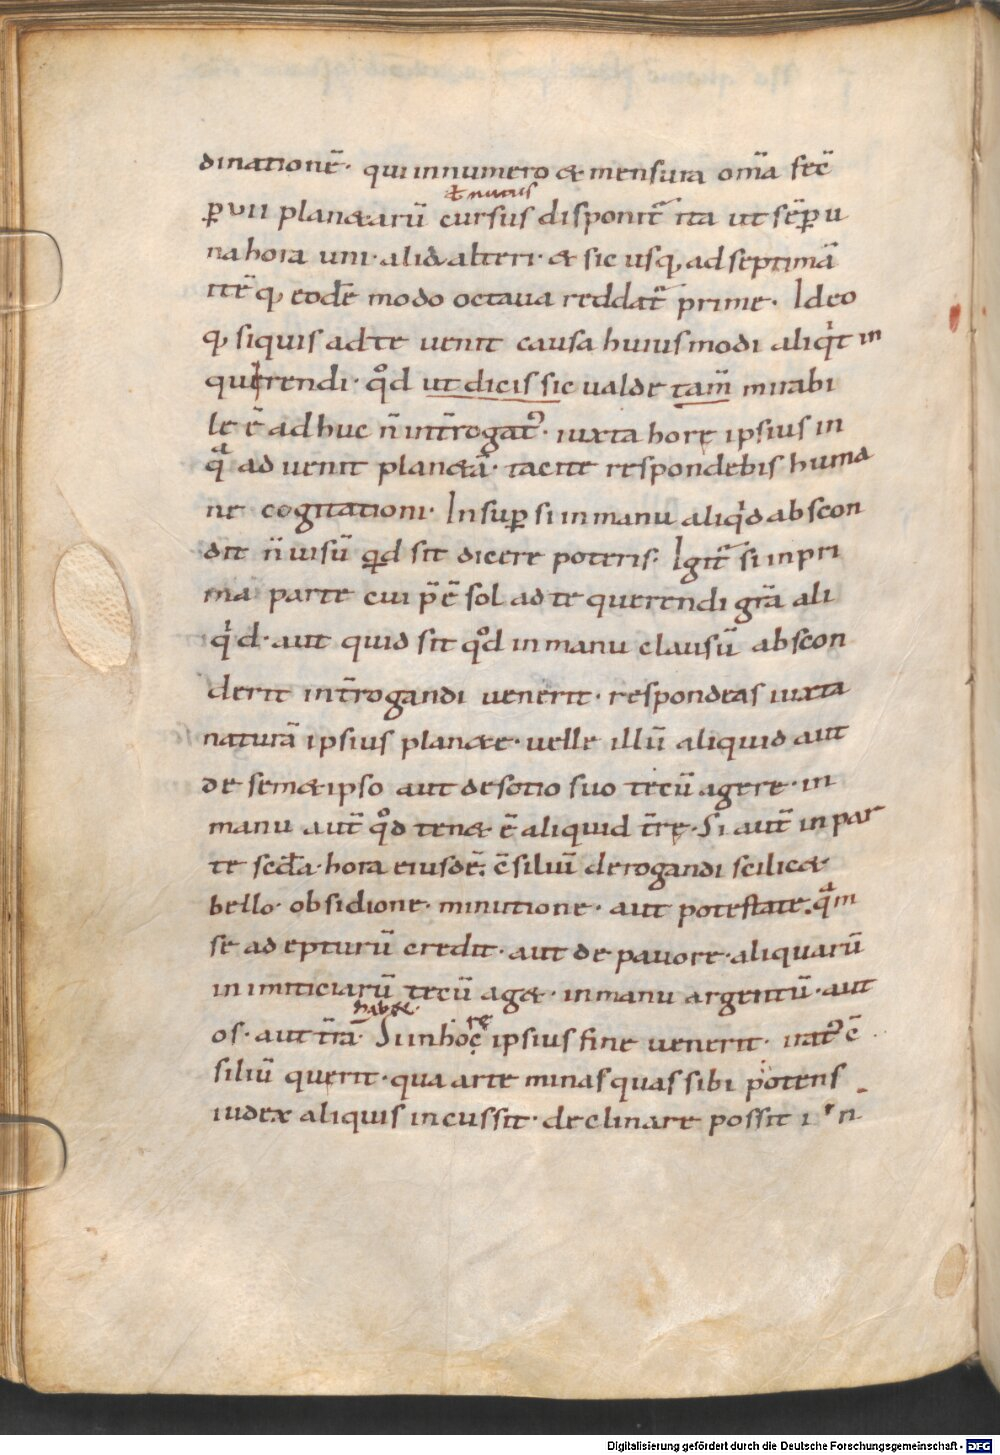 dinationē· qui in numero & mensura om̄a fec̄
ꝑ vii planetarū cursus disponit̄ ita ut sēꝑ u
ł nutus
na hora uni· alia alteri· & sic usq; ad septimā
itē q; eodē modo octava reddat̄ prime· Ideo
q; siquis ad te uenit causa huius modi aliqͥt in
querendi· qͦd ut dicis sic ualde tam̄ mirabi
le ē adhuc n̄ int̄rogat᷒· iuxta horę ipsius in
qͣ aduenit plan&ā· tacite respondebis huma
ne cogitationi· Insuꝑ si in manu aliqͥd abscon
dit n̄ uisū qd sit dicere poteris· Igit̄ si in pri
ma parte cui p̄ē sol ad te querendi grā ali
qͥd· aut quid sit qͦd in manu clausū abscon
derit int̄rogandi uenerit· respondeas iuxta
naturā ipsius plan&e· uelle illū aliquid aut
de sem&ipso aut de sotio suo tecū agere· in
manu aut̄ qͦd ten& ē aliquid t̄rę· Si aut̄ in par
te scd̄a· hora eiusdē· c̄siliū derogandi scilic&
bello· obsidione· minutione· aut potestate· qͣm
se adepturū credit· aut de pavore· aliquarū
inimiciciarū tecū ag&· in manu argentū· aut
hab&·
os· aut t̄rā· Si in horę ipsius fine uenerit· irat᷒ ē
siliū querit· qua arte minas quas sibi potens
iudex aliquis incussit· declinare possit in
Digitalisierung gefördert durch die Deutsche Forschungsgemeinschaft - DFG